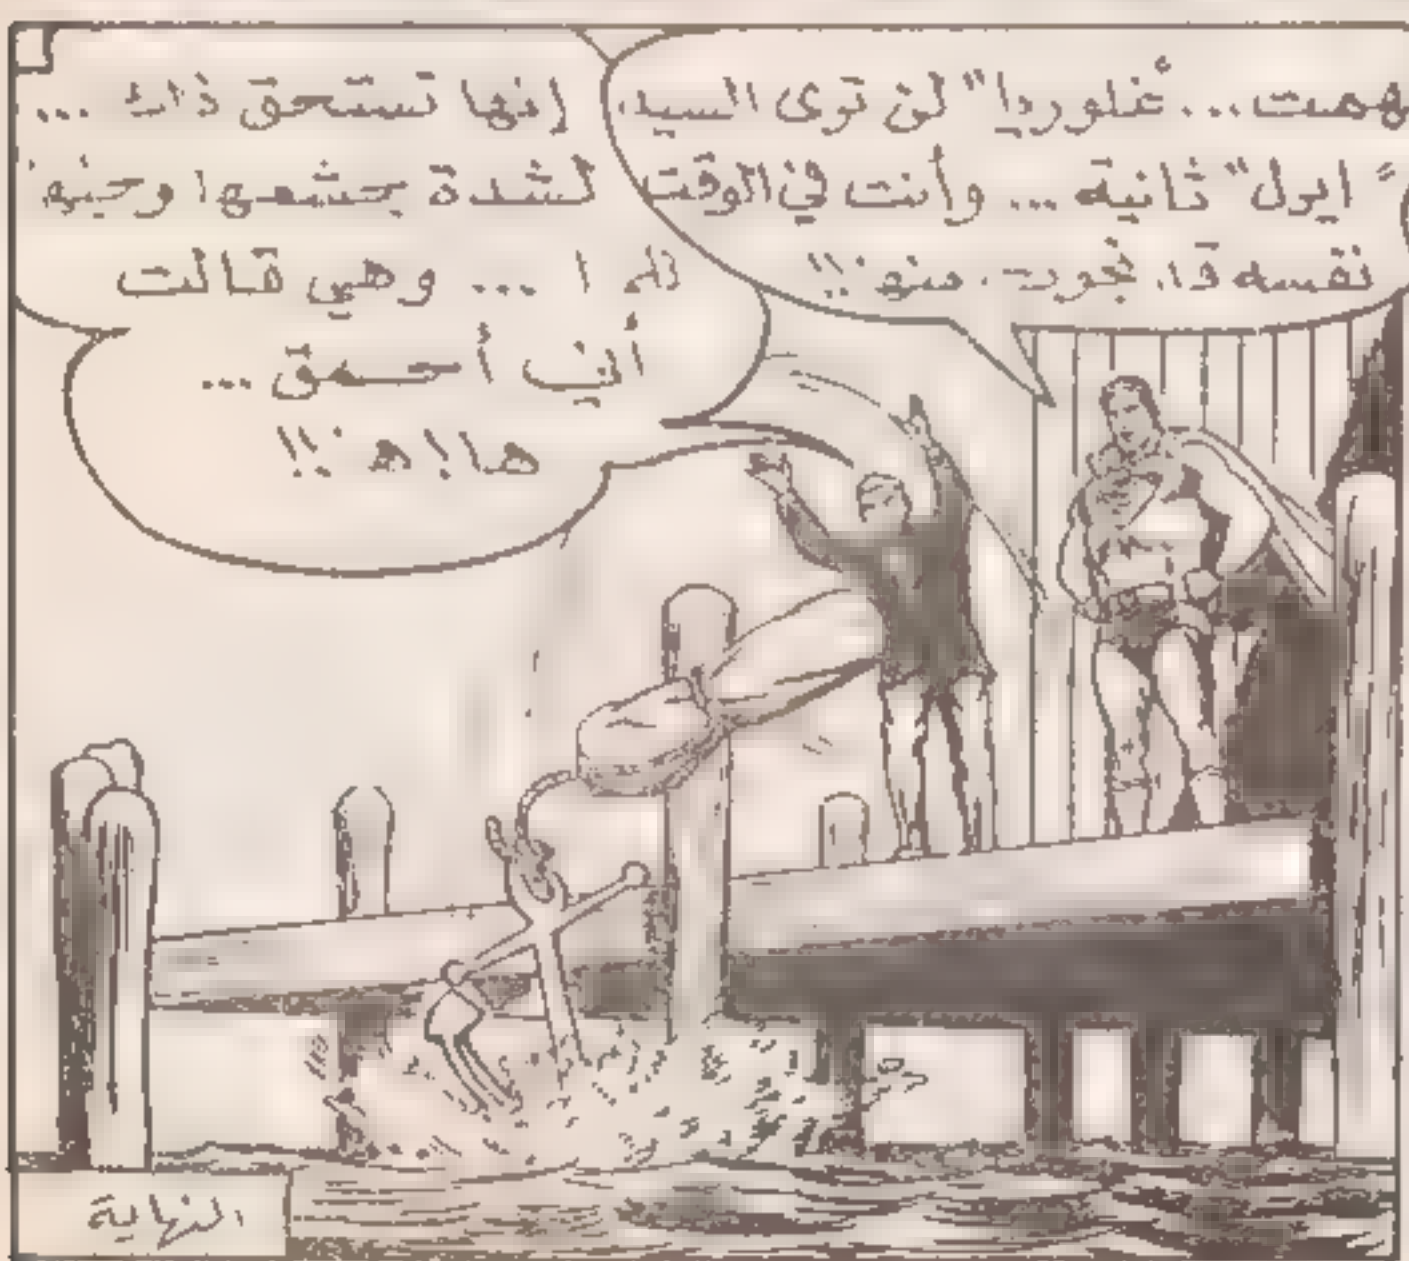 ... غلوريا" لن ترى السيد
"ايرل" ثانية ... وأنت في الوقت
نفسه قد نجوت منها !!
إنها تستحق ذلك ...
لشدة جشعها
... وهي قالت
أني أحمق ...
ها! ها !!
النهاية